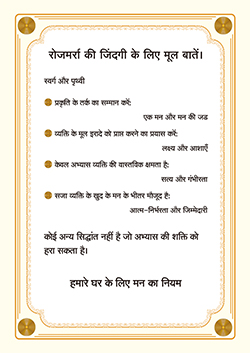 रोजमर्रा की जिंदगी के लिए मूल बातें।
स्वर्ग और पृथ्वी
प्रकृति के तर्क का सम्मान करें;
एक मन और मन की जड
व्यक्ति के मूल इरादे को प्राप्त करने का प्रयास करें;
लक्ष्य और आशाएँ
केवल अभ्यास व्यक्ति की वास्तविक क्षमता है;
सत्य और गंभीरता
सजा व्यक्ति के खुद के मन के भीतर मौजूद है;
आत्म-निर्भरता और जिम्मेदारी
कोई अन्य सिद्धांत नहीं है जो अभ्यास की शक्ति को
हरा सकता है।
हमारे घर के लिए मन का नियम